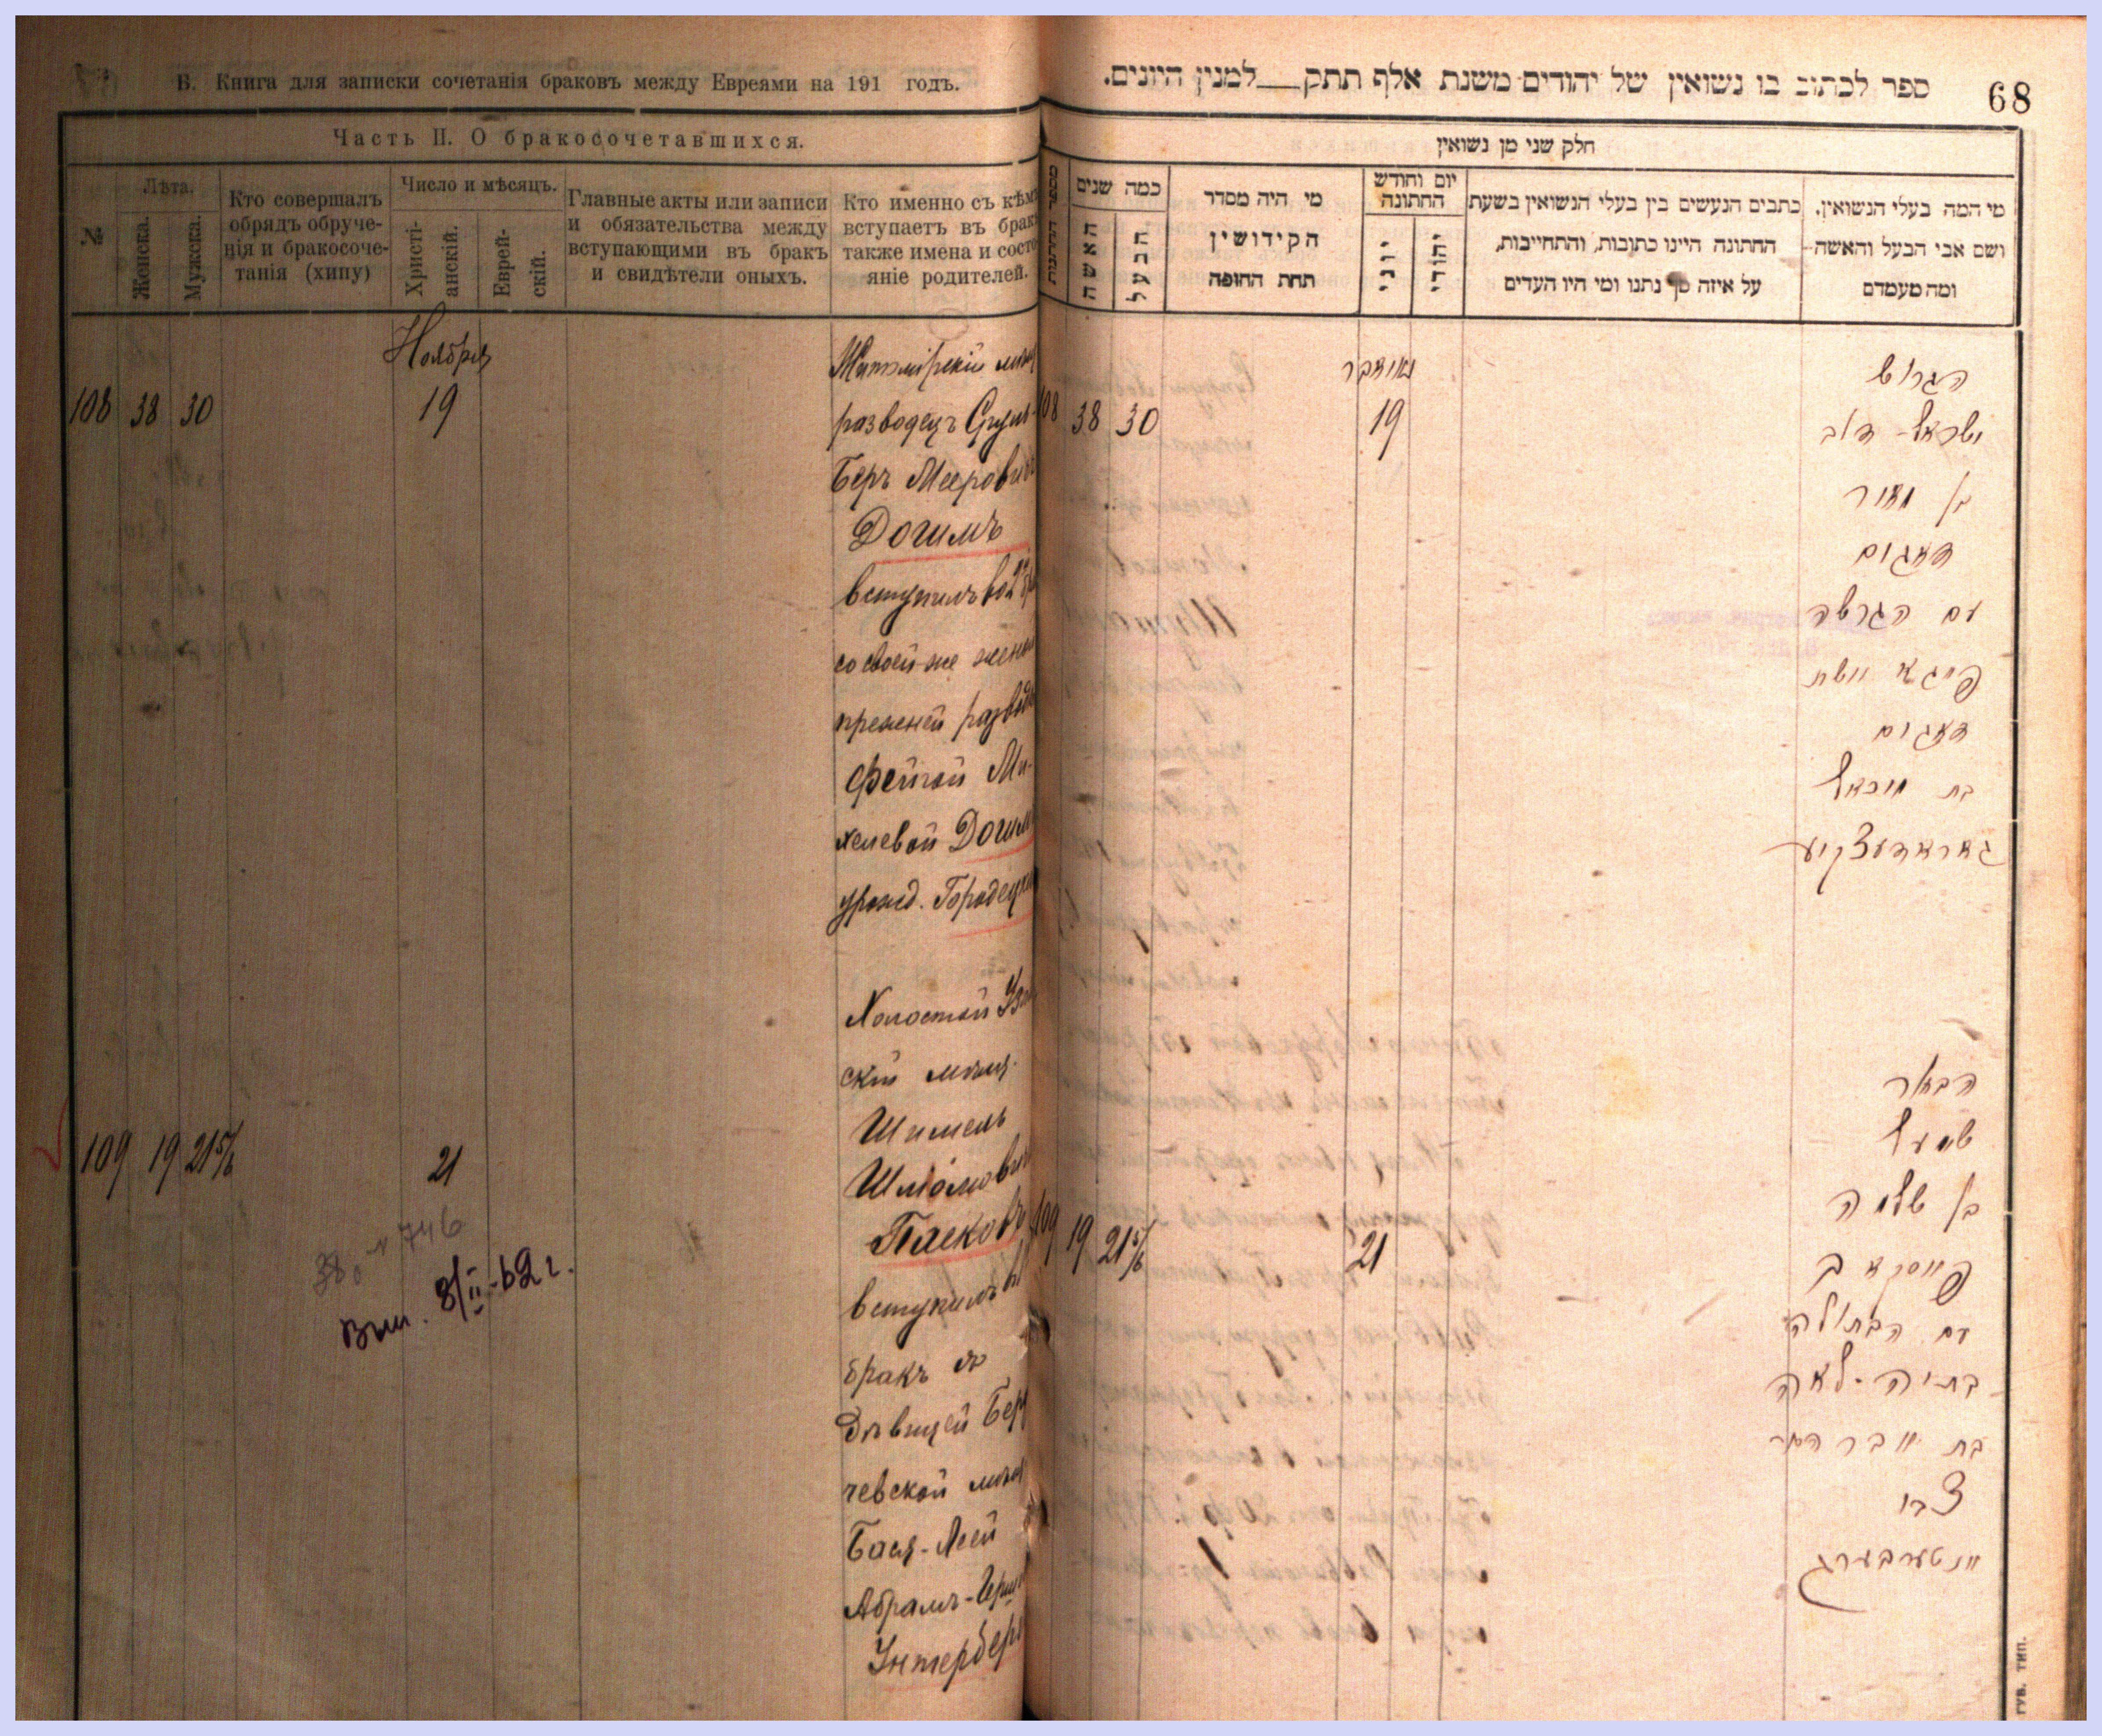 Б. Книга для записки сочетанія браковъ между Евреями на 191 годъ.
Часть II. О бракосочетавшихся.
№
Лѣта.
Женска.
Мужска.
Кто совершалъ
обрядъ обруче-
нія и бракосоче-
танія (хипу)
Число и мѣсяцъ.
Христі-
анскій.
Еврей-
скій.
Главные акты или записи
и обязательства между
вступающими въ бракъ
и свидѣтели оныхъ.
Кто именно съ кѣмъ
вступаетъ въ бракъ
также имена и состо-
яніе родителей.
Ноября
108 38 30 19
Житомірскій мѣщ
разводецъ Сруль-
Беръ Мееровичъ
Догимъ
вступилъ во 2й бр
со своей-же женой
прежней развед
Фейгой Ми-
хелевой Догим
урожд. Городецк
109 19 21 5/6 21
Холостой
скій мѣщ.
Шимель
Шліомович
Пасковъ
вступилъ въ
бракъ съ
дѣвицей Бер
чевской мѣщ
Бася-Леей
Абрамъ-Герш
Унтерберг
746
8/II-62 г.
ספר לכתוב בו נשואין של יהודים משנת אלף תתק__למנין היונים.
68
חלק שני מן נשואין
מספר החתונות
כמה שנים
האשה
הבעל
מי היה מסדר
הקידושין
תחת החופה
יום וחודש
החתונה
יוני
יהודי
כתבים הנעשים בין בעלי הנשואין בשעת
החתונה היינו כתובות, והתחייבות,
על איזה סך נתנו ומי היו העדים
מי המה בעלי הנשואין.
ושם אבי הבעל והאשה
ומה מעמדם
נאויאבר
108 38 30 19
הגרוש
ישראל-דוב
בן מאיר
דאגים
עם הגרושה
פייגא
דאגים
בת מיכאל
גאראדעצקיע
109 19 21 5/6 21
הבחור
בן שלמה
פייסקאב
עם הבתולה
בתיה-לאה
בת
צבי
אונטערבערג
ГУБ. ТИП.